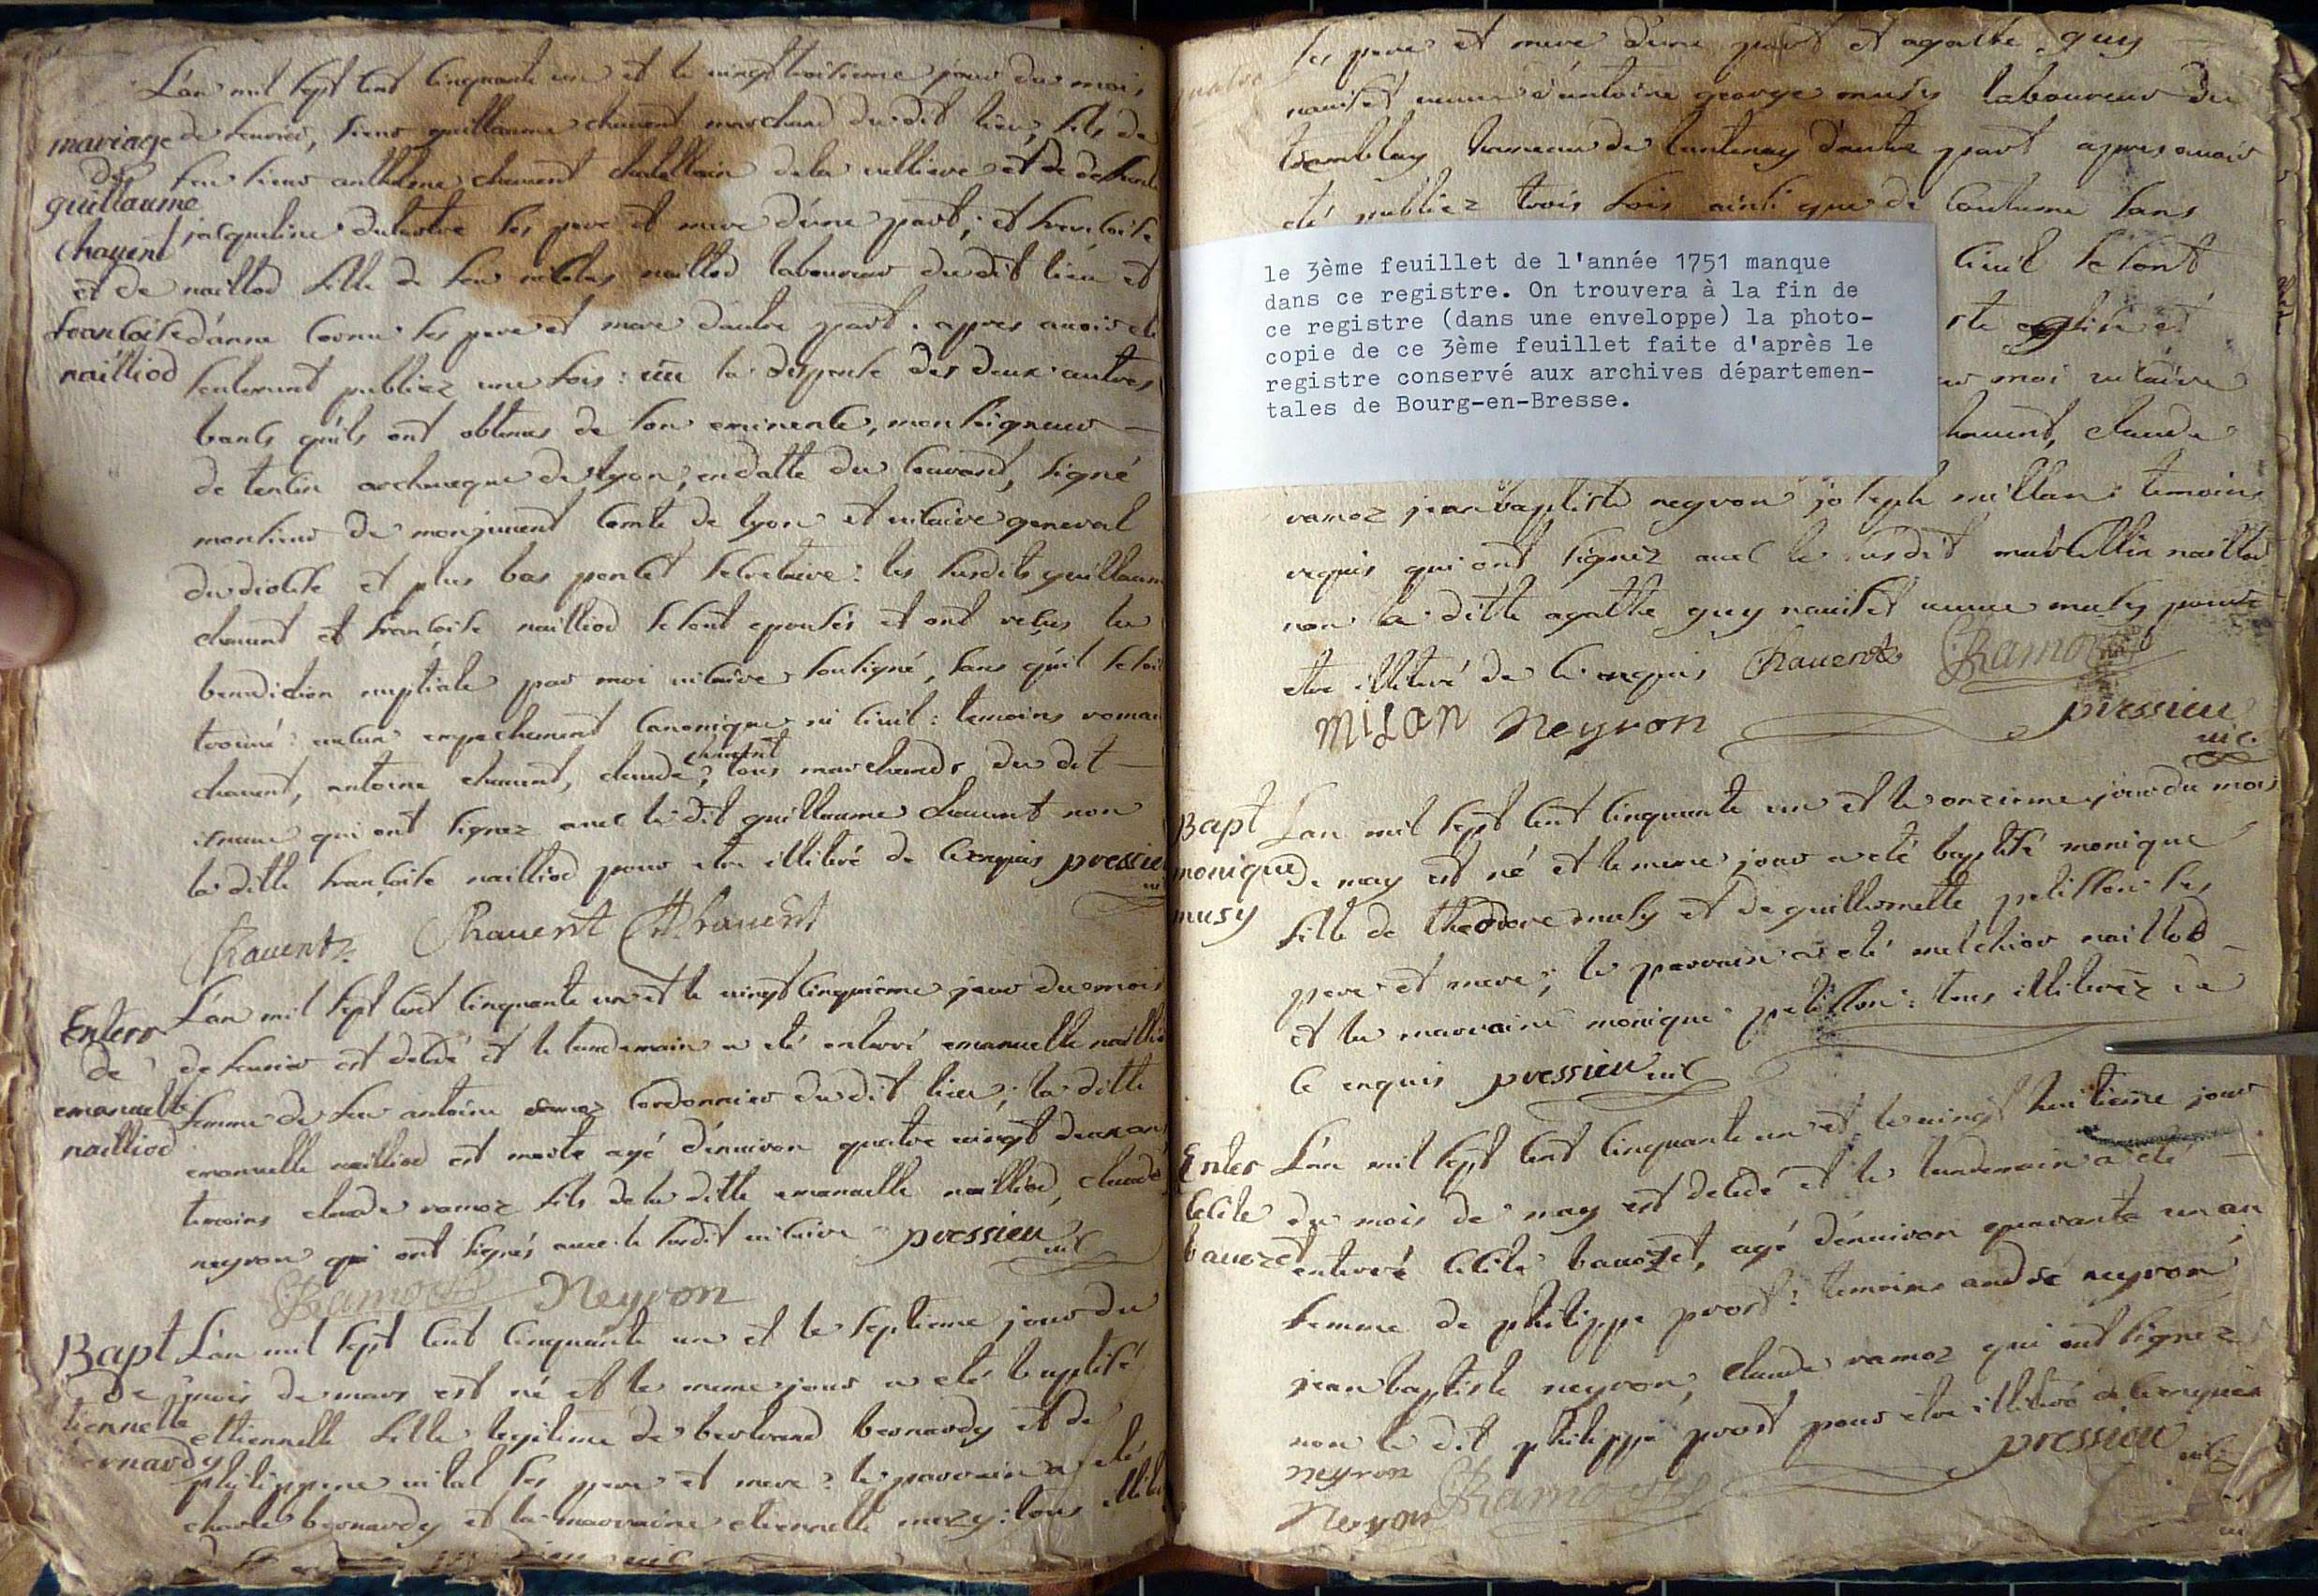 L'an mil sept cent cinquante un et le vingt troisieme jour du mois
mariage de fevrier, sieur guillaume chauent marchand dudit lieu, fils de
de feu sieur anthelme chauent chatellain de la velliere et de de
guillaume
chauent jacqueline dutertre ses pere et mere d'une part; et françoise
et de nailliod fille de feu nicolas nailliod laboureur dudit lieu et
françoise d'anne cornu ses pere et mere dautre part. apres avoir ete
nailliod seulement publiez une fois: vu la dispense des deux autres
bancs qu'ils ont obtenus de son eminence, monseigneur
de tentin archeveque de lyon, en datte du courant, signé
monsieur de monjouvent comte de lyon et vicaire general
du diocese et plus bas poncet secretaire: les susdits guillaume
chauent et françoise nailliod se sont epousés et ont reçus la
benediction nuptiale par moi vicaire soussigné, sans qu'il se soit
trouvé aucun empechement canonique ni civil: temoins roman
chauent, antoine chauent, claude chauent, tous marchands du dit
qui ont signez avec le dit guillaume chauent non
la ditte françoise nailliod pour etre illiteré de ce enquis pressieu
vic
Chauent Chauent Chauent
L'an mil sept cent cinquante un et le vingt cinquième jour du mois
Enterr
de de fevrier est decedé et le lendemain a eté enterré emanuelle nailliod
emanuelle femme de feu antoine ramoz cordonnier dudit lieu; la ditte
nailliod emanuelle nailliod est morte agé d'environ quatre vingt deux ans
temoins claude ramoz fils de la ditte emanuelle nailliod, claude
neyron qui ont signés avec le susdit vicaire pressieu
vic
Ramoz Neyron
Bapt L'an mil sept cent cinquante un et le septieme jour du
de mois de mars est né et le meme jour a eté baptisé
tiennette ettiennette fille legitime de bertrand bernardy et de
bernardy philippine vital ses pere et mere: le parrain a eté
charle bernardy et la marraine etiennette mezy: tous
ses pere et mere d'une part et agathe guy
nauiset veuve d'antoine george musy laboureur du
tremblay hameau de lantenay d'autre part apres avoir
eté publiez trois fois ainsi que de coutume sans
le 3ème feuillet de l'année 1751 manque
dans ce registre. On trouvera à la fin de
ce registre (dans une enveloppe) la photo-
copie de ce 3ème feuillet faite d'après le
registre conservé aux archives départemen-
tales de Bourg-en-Bresse.
civil se sont
eglise et
moi vicaire
chauent, claude
ramoz jean baptiste neyron joseph millan: temoins
requis qui ont signez avec le susdit marcellin nailliod
non la ditte agathe guy nauiset veuve musy pour
etre illiteré de ce enquis Chauent Ramoz
MILAN Neyron pressieu
vic
Bapt L'an mil sept cent cinquante un et le onzieme jour du mois
monique de may est né et le meme jour a eté baptisé monique
musy fille de theodore musy et de guillemette pelisson ses
pere et mere; le parrain a eté melchior nailliod
et la marraine monique pelisson: tous illiterez de
ce enquis pressieu vic
Enter L'an mil sept cent cinquante un et le vingt huitieme jour
du mois de may est decedé et le lendemain a eté
cecile
bauozet enterré cecile bauozet, agé d'environ quarante un an
femme de philippe prost: temoins andré neyron
jean baptiste neyron, claude ramoz qui ont signez
non le dit philippe prost pour etre illiteré de ce enquis
neyron pressieu
vic
Neyron Ramoz